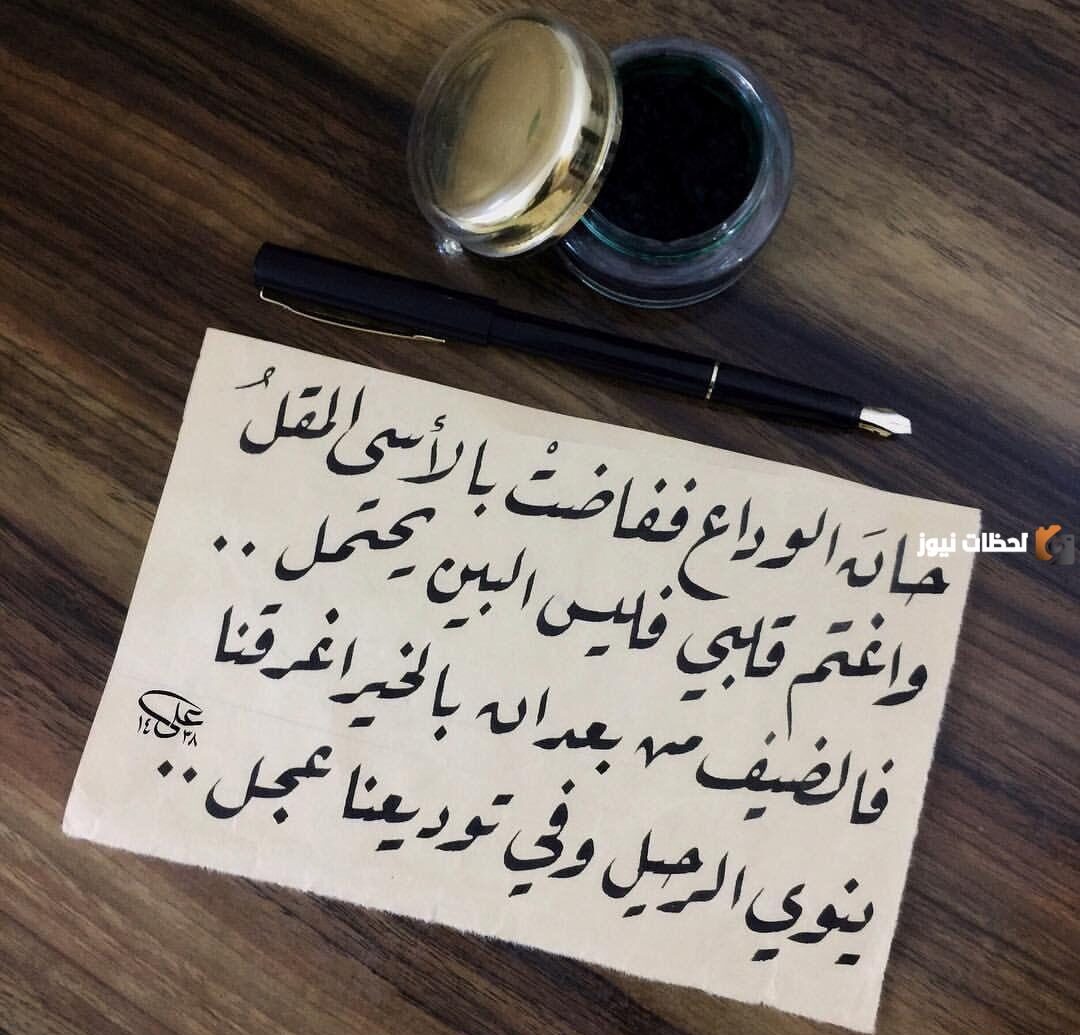 حانَ الوداع ففاضتْ بالأسى المقلُ
واغتم قلبي فليس البين يحتمل ..
فالضيف من بعد ان بالخير اغرقنا
ينوي الرحيل وفي توديعنا عجل ..
علي
١٤٣٨
لحظات نيوز